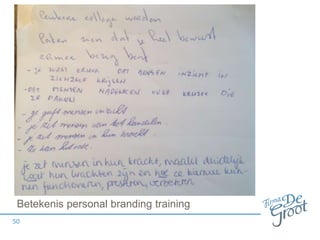 college worden
Laten zien dat je heel bewust
ermee bezig bent
- je moet ervoor om mensen inzicht in
zichzelf krijgen
- dat mensen nadenken over keuzes die
ze maken
- je geeft mensen inzicht
- je zet mensen aan tot handelen
- je zet mensen in hun kracht
- Ze kan het ook.
je zet mensen in hun kracht, maakt duidelijk
wat hun krachten zijn en hoe ze hiermee kun-
nen functioneren, presteren, verbeteren
Betekenis personal branding training
50
De
Groot